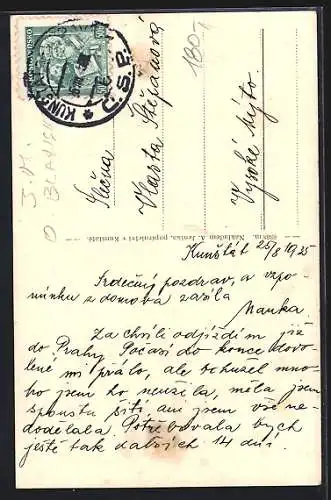 180,-
KUNŠ
Č.S.P.
Slečna
Vlasta Štěpánová
Vysoké Mýto
Nákladem A. Jenika, papírnictví v Kunštátě.
J. M.
O
Kunštát 25/8 1925
Srdečný pozdrav, a vzpo-
mínku z domova zasílá
Mańka.
Za chvíli odjíždím již
do Prahy. Počasí do konce dovo-
lené mi přálo, ale bohužel mno-
ho jsem ho neužila, měla jsem
spoustu šití, ani jsem vše ne-
dodělala. Potřebovala bych
ještě tak dalších 14 dní.